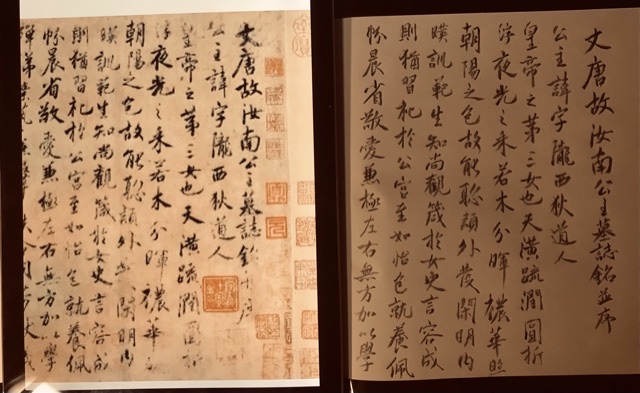 大唐故汝南公主墓誌銘并序
公主諱字隴西狄道人
皇帝之第三女也天潢疏潤圓折
浮夜光之采若木分暉穠華
朝陽之色故能聰穎外發閑明內
暎訓範生知尚觀箴於女史言容成
則猶習礼於公宮至如怡色就養佩
帉晨省敬愛兼極左右無方加以學
大唐故汝南公主墓誌銘並序
公主諱字隴西狄道人
皇帝之第三女也天潢疏潤圓折
浮夜光之采若木分暉穠華照
朝陽之色故能聰穎外發閑明內
暎訓範生知尚觀箴於女史言容成
則猶習礼於公宮至如怡色就養佩
帉晨省敬愛兼極左右無方加以學